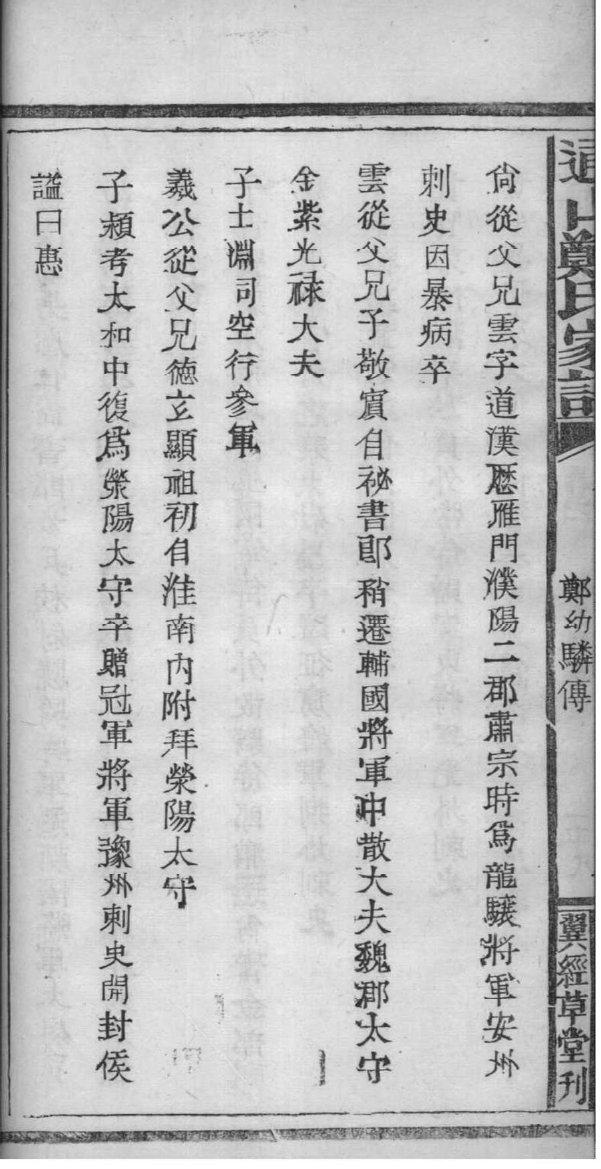 鄭氏家記
鄭幼驎傳
翼經草堂刋
尙從父兄雲字道漢歷雁門濮陽二郡肅宗時爲龍驤將軍安州
刺史因暴病卒
雲從父兄子敬賓自祕書郎稍遷輔國將軍中散大夫魏郡太守
金紫光祿大夫
子士淵司空行參軍
羲公從父兄德玄顯祖初自淮南內附拜滎陽太守
子潁考太和中復爲滎陽太守卒贈冠軍將軍豫州刺史開封侯
謚曰惠